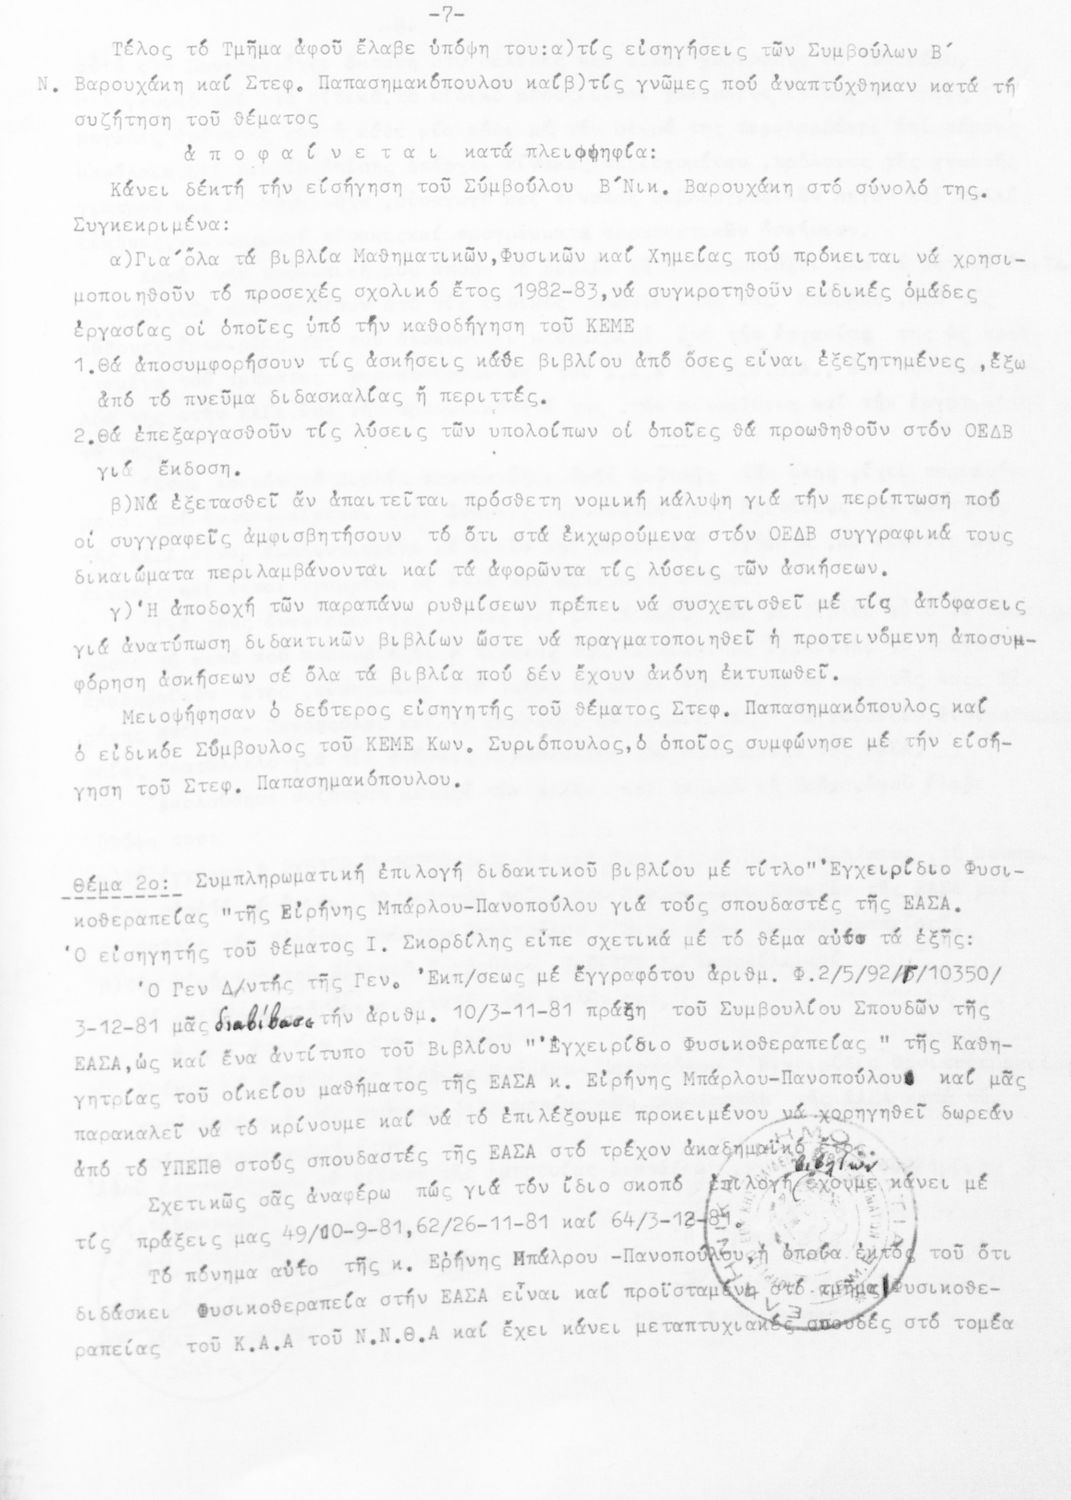 -7-
Τέλος τό Τμῆμα ἀφοῦ ἔλαβε ὑπόψη του:α)τίς εἰσηγήσεις τῶν Συμβούλων Β΄
Ν. Βαρουχάκη καί Στεφ. Παπασημακόπουλου καίβ)τίς γνῶμες πού ἀναπτύχθηκαν κατά τή
συζήτηση τοῦ θέματος
ἀ π ο φ α ί ν ε τ α ι κατά πλειοψηφία:
Κάνει δέκτή τήν εἰσήγηση τοῦ Σύμβούλου Β΄Νικ. Βαρουχάκη στό σύνολό της.
Συγκεκριμένα:
α)Γιά ὅλα τά βιβλία Μαθηματικῶν,Φυσικῶν καί Χημείας πού πρόκειται νά χρησι-
μοποιηθοῦν τό προσεχές σχολικό ἔτος 1982-83,νά συγκροτηθοῦν εἰδικές ὁμάδες
ἐργασίας οἱ ὁποῖες ὑπό τήν καθοδήγηση τοῦ ΚΕΜΕ
1.Θά ἀποσυμφορήσουν τίς ἀσκήσεις κάθε βιβλίου ἀπό ὅσες εἶναι ἐξεζητημένες ,ἔξω
ἀπό τό πνεῦμα διδασκαλίας ἤ περιττές.
2.Θά ἐπεξαργασθοῦν τίς λύσεις τῶν υπολοίπων οἱ ὁποῖες θά προωθηθοῦν στόν ΟΕΔΒ
γιά ἔκδοση.
β)Νά ἐξετασθεῖ ἄν ἀπαιτεῖται πρόσθετη νομική κάλυψη γιά τήν περίπτωση πού
οἱ συγγραφεῖς ἀμφισβητήσουν τό ὅτι στά ἐκχωρούμενα στόν ΟΕΔΒ συγγραφικά τους
δικαιώματα περιλαμβάνονται καί τά ἀφορῶντα τίς λύσεις τῶν ἀσκήσεων.
γ)Ἡ ἀποδοχή τῶν παραπάνω ρυθμίσεων πρέπει νά συσχετισθεῖ μέ τίς ἀπόφασεις
γιά ἀνατύπωση διδακτικῶν βιβλίων ὥστε νά πραγματοποιηθεῖ ἡ προτεινόμενη ἀποσυμ-
φόρηση ἀσκήσεων σέ ὅλα τά βιβλία πού δέν ἔχουν ἀκόνη ἐκτυπωθεῖ.
Μειοψήφησαν ὁ δεύτερος εἰσηγητής τοῦ θέματος Στεφ. Παπασημακόπουλος καί
ὁ εἰδικόε Σύμβουλος τοῦ ΚΕΜΕ Κων. Συριόπουλος,ὁ ὁποῖος συμφώνησε μέ τήν εἰσή-
γηση τοῦ Στεφ. Παπασημακόπουλου.
Θέμα 2ο: Συμπληρωματική ἐπιλογή διδακτικοῦ βιβλίου μέ τίτλο"Ἐγχειρίδιο Φυσι-
κοθεραπείας "τῆς Εἰρήνης Μπάρλου-Πανοπούλου γιά τούς σπουδαστές τῆς ΕΑΣΑ.
Ὁ εἰσηγητής τοῦ θέματος Ι. Σκορδίλης εἶπε σχετικά μέ τό θέμα αὐτο τά ἑξῆς:
Ὁ Γεν Δ/ντής τῆς Γεν. Ἐκπ/σεως μέ ἔγγραφότου ἀριθμ. Φ.2/5/92/Γ/10350/
3-12-81 μᾶς διαβίβασε τήν ἀριθμ. 10/3-11-81 πράξη τοῦ Συμβουλίου Σπουδῶν τῆς
ΕΑΣΑ,ὡς καί ἕνα ἀντίτυπο τοῦ Βιβλίου "Ἐγχειρίδιο Φυσικοθεραπείας " τῆς Καθη-
γητρίας τοῦ οἰκείου μαθήματος τῆς ΕΑΣΑ κ. Εἰρήνης Μπάρλου-Πανοπούλου καί μᾶς
παρακαλεῖ νά τό κρίνουμε καί νά τό ἐπιλέξουμε προκειμένου νά χορηγηθεῖ δωρεάν
ἀπό τό ΥΠΕΠΘ στούς σπουδαστές τῆς ΕΑΣΑ στό τρέχον ἀκαδημαϊκό ἔτος.
βιβλίων
Σχετικῶς σᾶς ἀναφέρω πώς γιά τόν ἴδιο σκοπό ἐπιλογή ἔχουμε κάνει μέ
τίς πράξεις μας 49/10-9-81,62/26-11-81 καί 64/3-12-81.
Τό πόνημα αὐτο τῆς κ. Ερήνης Μπάλρου -Πανοπούλου,ἡ ὁποία ἐκτός τοῦ ὅτι
διδάσκει Φυσικοθεραπεία στήν ΕΑΣΑ εἶναι καί προϊσταμένη στό τμῆμα Φυσικοθε-
ραπείας τοῦ Κ.Α.Α τοῦ Ν.Ν.Θ.Α καί ἔχει κάνει μεταπτυχιακές σπουδές στό τομέα